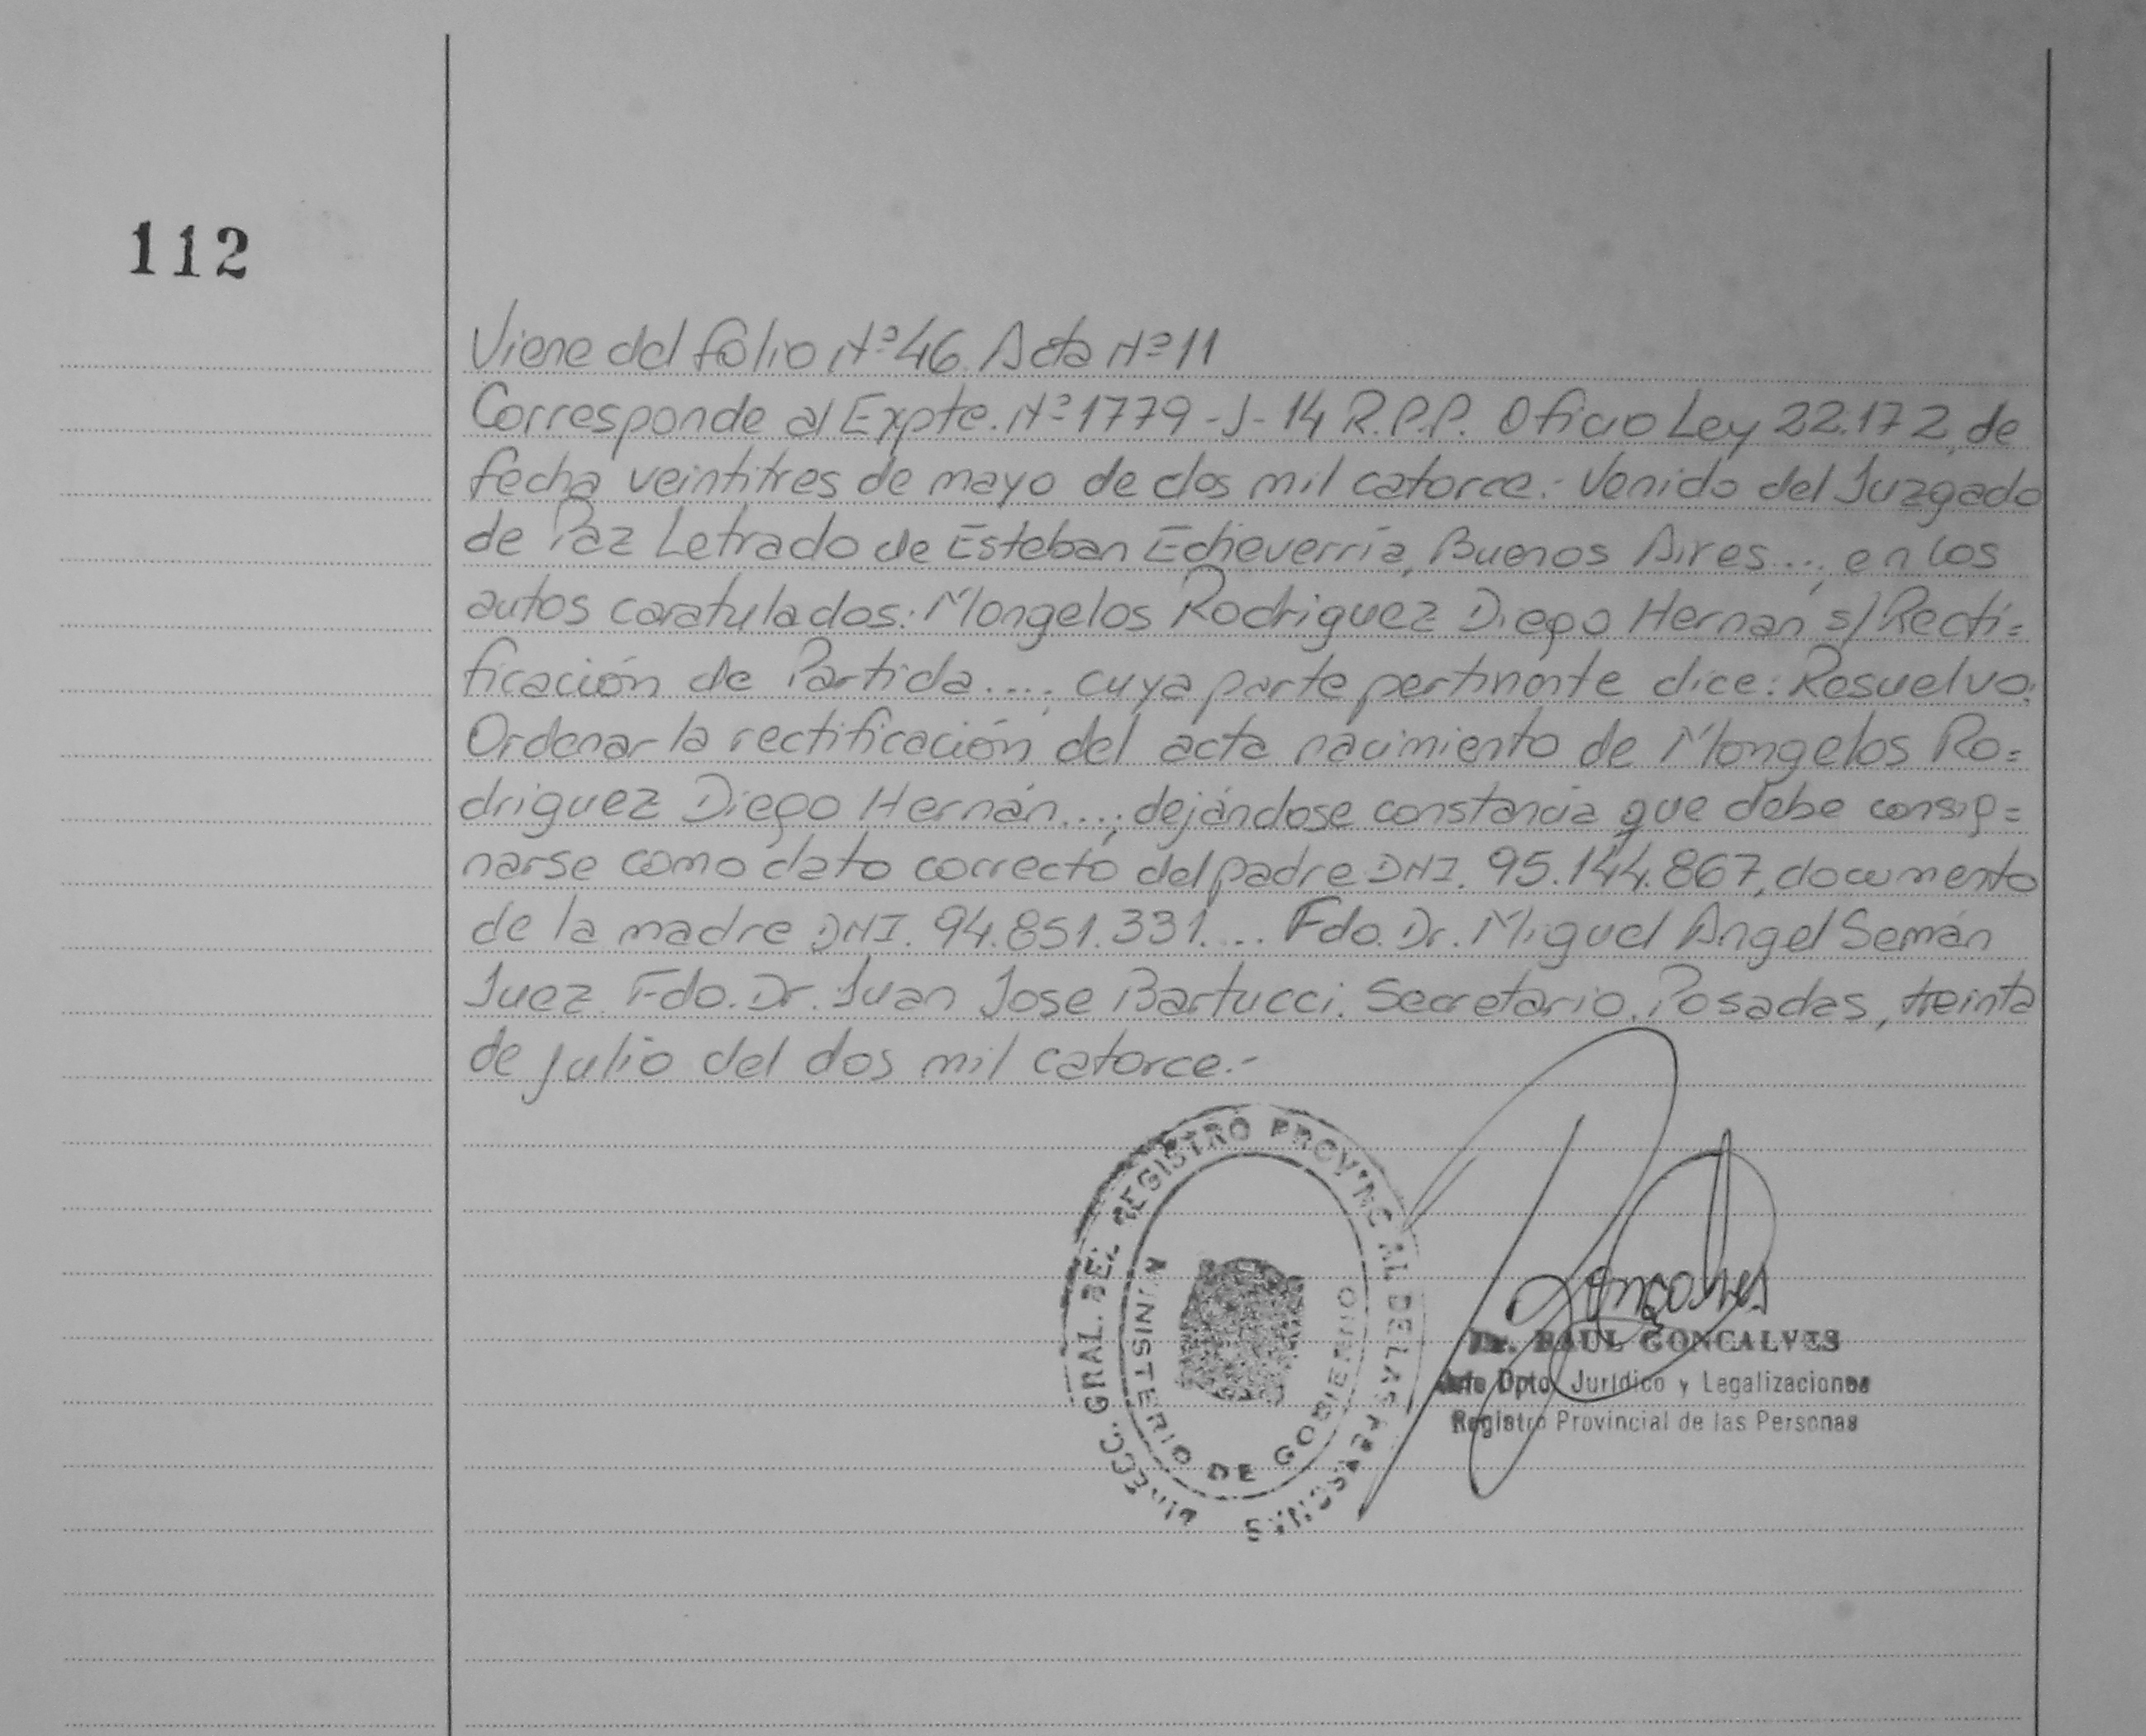 112
Viene del folio Nº 46 Acta Nº 11
Corresponde al Expte. Nº 1779-J-14 R.P.P. Oficio Ley 22.172, de
fecha veintitres de mayo de dos mil catorce.- Venido del Juzgado
de Paz Letrado de Esteban Echeverría, Buenos Aires...; en los
autos caratulados: Mongelos Rodriguez Diego Hernan s/ Recti=
ficación de Partida....; cuya parte pertinente dice: Resuelvo:
Ordenar la rectificación del acta nacimiento de Mongelos Ro=
driguez Diego Hernán....; dejándose constancia que debe consig=
narse como dato correcto del padre DNI. 95.144.867, documento
de la madre DNI. 94.851.331.... Fdo. Dr. Miguel Angel Semán
Juez. Fdo. Dr. Juan Jose Bartucci. Secretario. Posadas, treinta
de julio del dos mil catorce.-
DIRECC. GRAL. DEL REGISTRO PROVINCIAL DE LAS PERSONAS
MINISTERIO DE GOBIERNO
Goncalves
Dr. RAUL GONCALVES
Jefe Dpto. Jurídico y Legalizaciones
Registro Provincial de las Personas